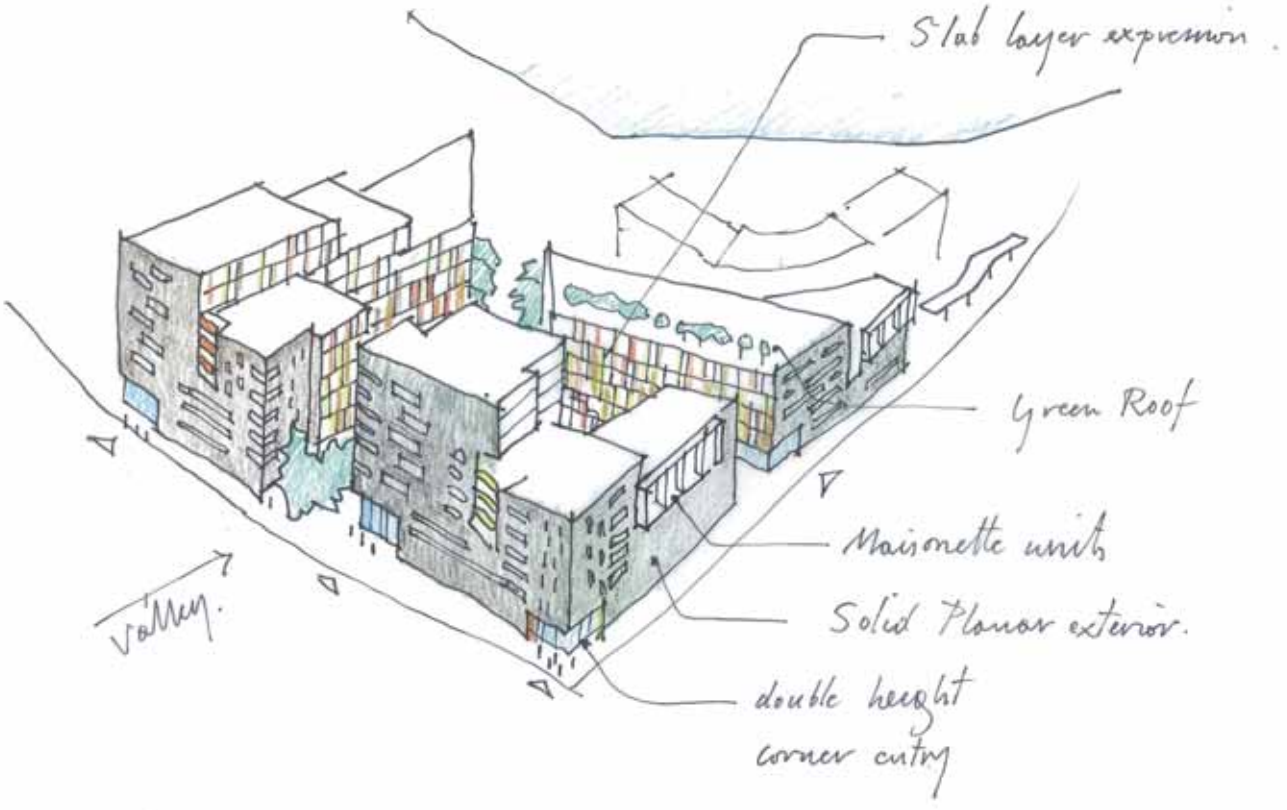 Slab layer expression.
Green Roof
Maisonette units
Solid Planar exterior.
double height
corner entry
valley.